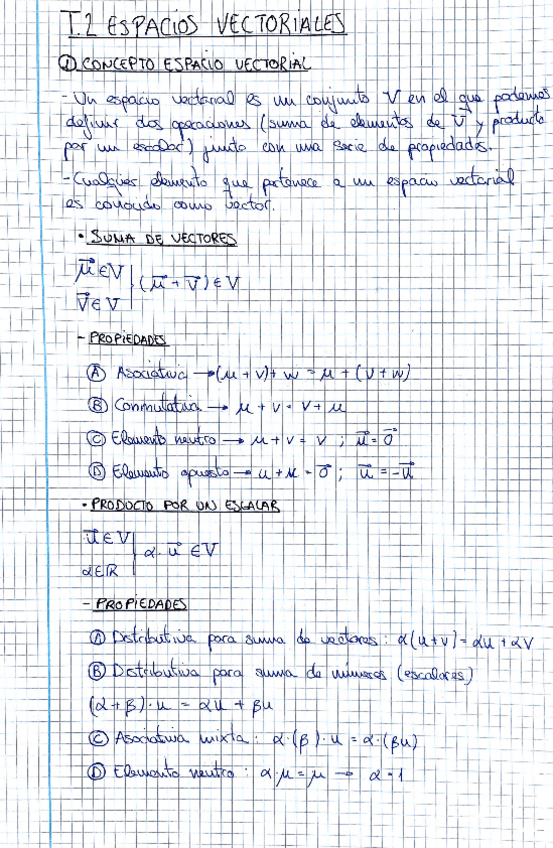 T.2 ESPACIOS VECTORIALES
① CONCEPTO ESPACIO VECTORIAL
- Un espacio vectorial es un conjunto V en el que podemos
definir dos operaciones (suma de elementos de V y producto
por un escalar) junto con una serie de propiedades.
- Cualquier elemento que pertenece a un espacio vectorial
es conocido como vector.
• SUMA DE VECTORES
μ⃗ ∈ V
v⃗ ∈ V | (μ⃗ + v⃗) ∈ V
- PROPIEDADES
Ⓐ Asociativa → (μ + v) + w = μ + (v + w)
Ⓑ Conmutativa → μ + v = v + μ
Ⓒ Elemento neutro → μ + v = v ; μ⃗ = 0⃗
Ⓓ Elemento opuesto → u + u = 0⃗ ; u⃗ = -u⃗
• PRODUCTO POR UN ESCALAR
u⃗ ∈ V
α ∈ ℝ | α · u⃗ ∈ V
- PROPIEDADES
Ⓐ Distributiva para suma de vectores : α(u+v) = αu + αv
Ⓑ Distributiva para suma de números (escalares)
(α + β) · u = αu + βu
Ⓒ Asociativa mixta : α · (β) · u = α · (βu)
Ⓓ Elemento neutro : α · μ = μ → α = 1